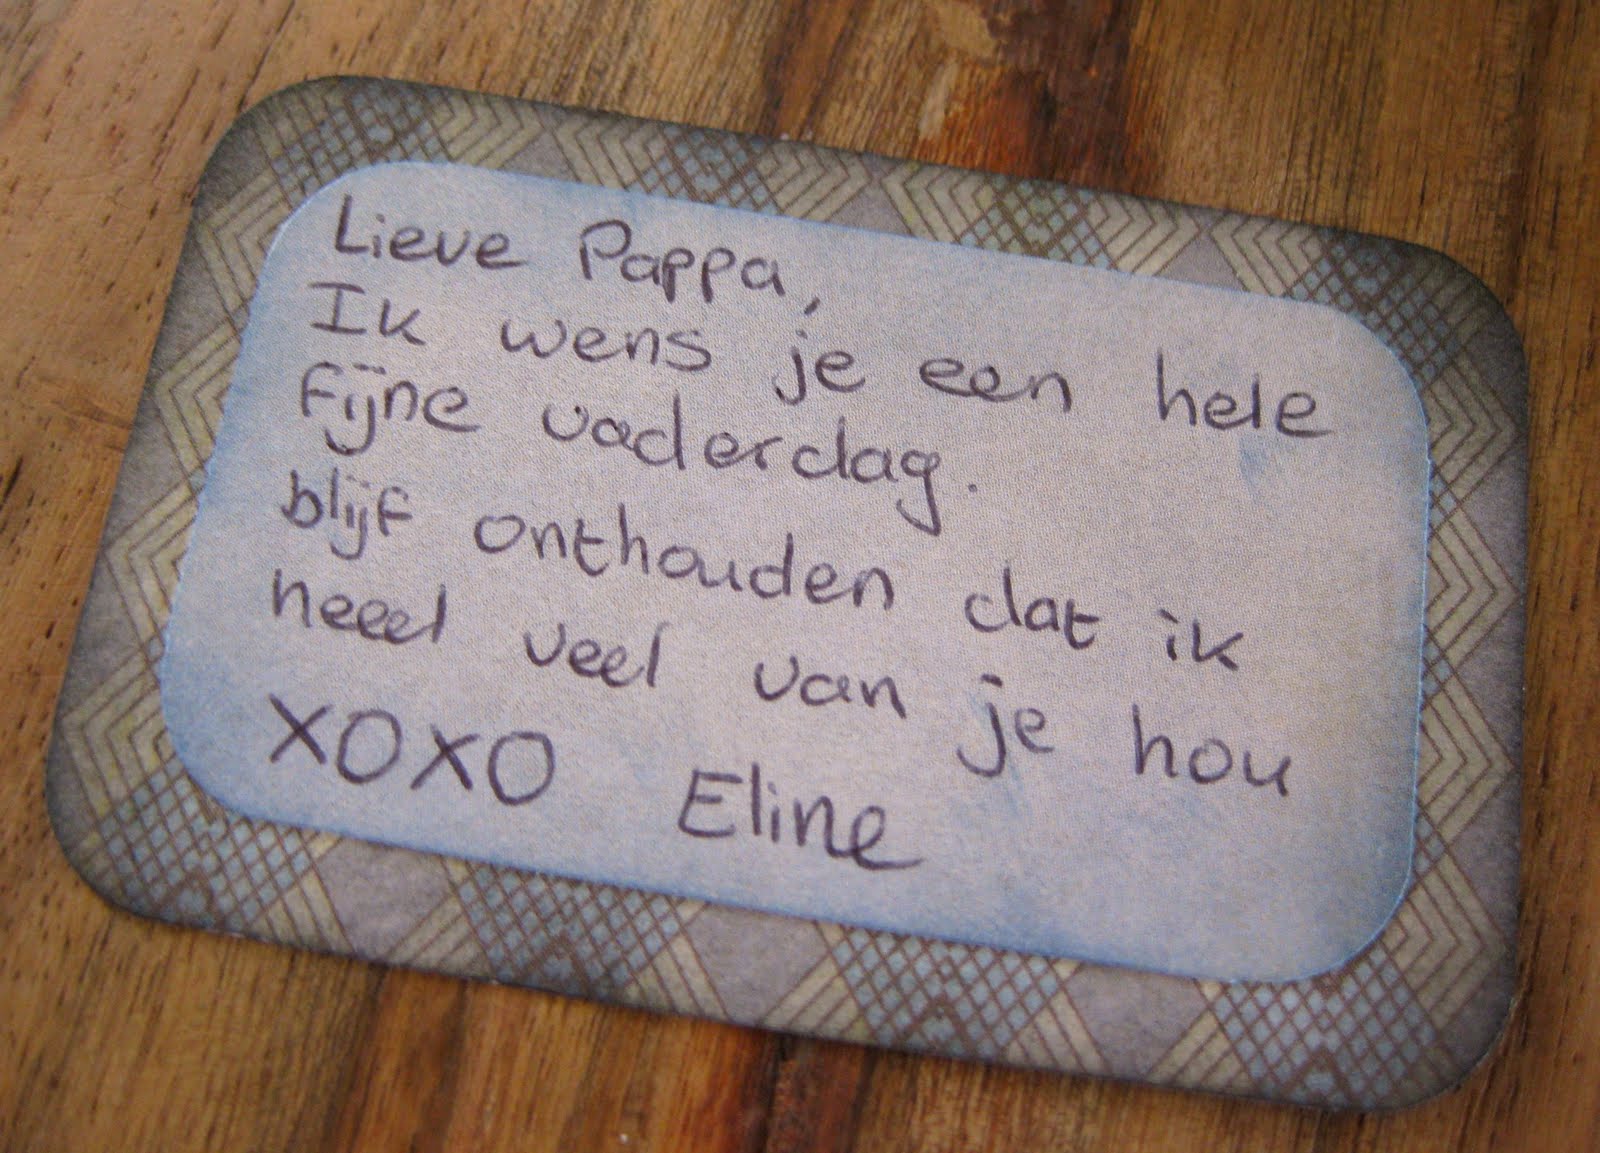 Lieve Pappa,
Ik wens je een hele
fijne vaderdag.
blijf onthouden dat ik
heeel veel van je hou
XOXO Eline